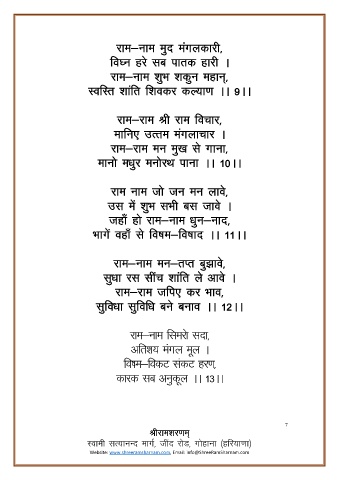 राम–नाम मुद मंगलकारी,
विघ्न हरे सब पातक हारी ।
राम–नाम शुभ शकुन महान्,
स्वस्ति शांति शिवकर कल्याण ।। 9।।
राम–राम श्री राम विचार,
मानिए उत्तम मंगलाचार ।
राम–राम मन मुख से गाना,
मानो मधुर मनोरथ पाना ।। 10।।
राम नाम जो जन मन लावे,
उस में शुभ सभी बस जावे ।
जहाँ हो राम–नाम धुन–नाद,
भागें वहाँ से विषम–विषाद ।। 11।।
राम–नाम मन–तप्त बुझावे,
सुधा रस सींच शांति ले आवे ।
राम–राम जपिए कर भाव,
सुविधा सुविधि बने बनाव ।। 12।।
राम–नाम सिमरो सदा,
अतिशय मंगल मूल ।
विषम–विकट संकट हरण,
कारक सब अनुकूल ।। 13।।
7
श्रीरामशरणम्
स्वामी सत्यानन्द मार्ग, जींद रोड, गोहाना (हरियाणा)
Website: www.shreeramsharnam.com, Email: info@ShreeRamSharnam.com